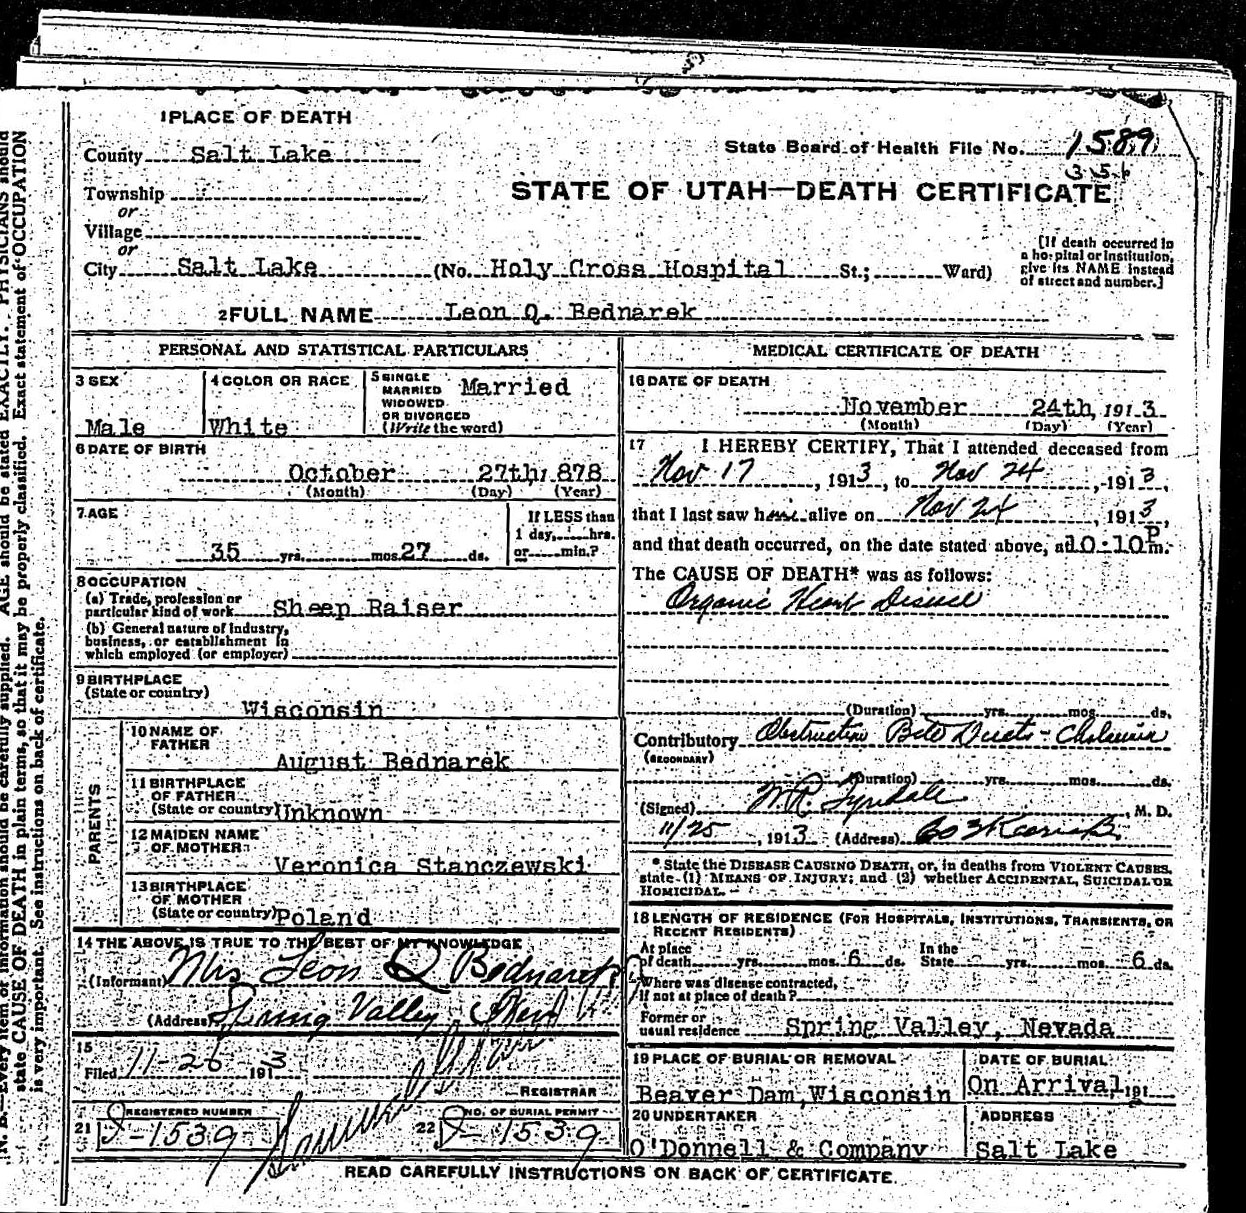 1 PLACE OF DEATH
County Salt Lake
State Board of Health File No. 1589
356
Township
or
Village
or
STATE OF UTAH—DEATH CERTIFICATE
City Salt Lake (No. Holy Cross Hospital St.; Ward)
[If death occurred in
a hospital or institution,
give its NAME instead
of street and number.]
2 FULL NAME Leon Q. Bednarek
PERSONAL AND STATISTICAL PARTICULARS
3 SEX
Male
4 COLOR OR RACE
White
5 SINGLE
MARRIED
WIDOWED
OR DIVORCED
(Write the word)
Married
6 DATE OF BIRTH
October 27th, 1878
(Month) (Day) (Year)
7 AGE
35 yrs. mos. 27 ds.
If LESS than
1 day, hrs.
or min.?
8 OCCUPATION
(a) Trade, profession or
particular kind of work Sheep Raiser
(b) General nature of industry,
business, or establishment in
which employed (or employer)
9 BIRTHPLACE
(State or country)
Wisconsin
PARENTS
10 NAME OF
FATHER
August Bednarek
11 BIRTHPLACE
OF FATHER
(State or country) Unknown
12 MAIDEN NAME
OF MOTHER
Veronica Stanczewski
13 BIRTHPLACE
OF MOTHER
(State or country) Poland
14 THE ABOVE IS TRUE TO THE BEST OF MY KNOWLEDGE
(Informant) Mrs Leon Q Bednarek
(Address) Spring Valley
15
Filed 11-26 1913
REGISTRAR
21 REGISTERED NUMBER
S-1539
22 NO. OF BURIAL PERMIT
S-1539
MEDICAL CERTIFICATE OF DEATH
16 DATE OF DEATH
November 24th, 1913
(Month) (Day) (Year)
17 I HEREBY CERTIFY, That I attended deceased from
Nov 17, 1913, to Nov 24, 1913,
that I last saw him alive on Nov 24, 1913,
and that death occurred, on the date stated above, at 10:10 P m.
The CAUSE OF DEATH* was as follows:
Organic Heart Disease
(Duration) yrs. mos. ds.
Contributory Obstruction Bile Ducts -
(SECONDARY)
(Duration) yrs. mos. ds.
(Signed) W.R. Tyndale, M. D.
11/25, 1913 (Address)
* State the DISEASE CAUSING DEATH, or, in deaths from VIOLENT CAUSES,
state (1) MEANS OF INJURY; and (2) whether ACCIDENTAL, SUICIDAL OR
HOMICIDAL.
18 LENGTH OF RESIDENCE (FOR HOSPITALS, INSTITUTIONS, TRANSIENTS, OR
RECENT RESIDENTS)
At place
of death yrs. mos. 6 ds.
In the
State yrs. mos. 6 ds.
Where was disease contracted,
if not at place of death?
Former or
usual residence Spring Valley, Nevada
19 PLACE OF BURIAL OR REMOVAL
Beaver Dam, Wisconsin
DATE OF BURIAL
On Arrival, 191
20 UNDERTAKER
O'Donnell & Company
ADDRESS
Salt Lake
READ CAREFULLY INSTRUCTIONS ON BACK OF CERTIFICATE.
N. B.—Every item of information should be carefully supplied. AGE should be stated EXACTLY. PHYSICIANS should
state CAUSE OF DEATH in plain terms, so that it may be properly classified. Exact statement of OCCUPATION
is very important. See instructions on back of certificate.